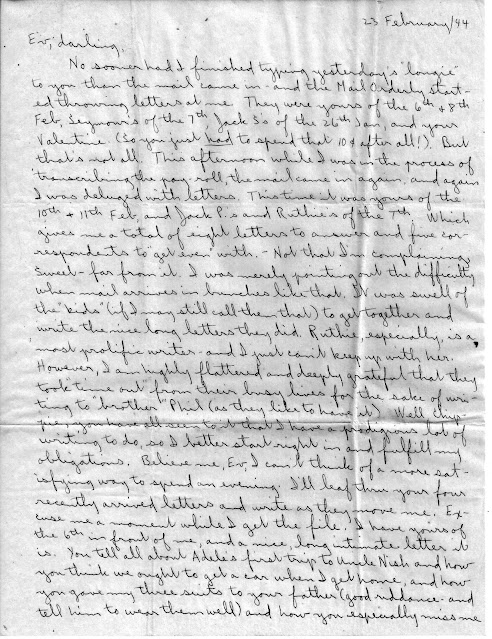 23 February/44
Ev, darling,
No sooner had I finished typing yesterday's "longie"
to you than the mail came in - and the Mail Orderly start-
ed throwing letters at me. They were yours of the 6th & 8th
Feb, Seymour's of the 7th, Jack S's of the 26th Jan, and your
Valentine. (So you just had to spend that 10¢ after all!). But
that's not all. This afternoon while I was in the process of
transcribing the pay roll, the mail came in again, and again
I was deluged with letters. This time it was yours of the
10th & 11th Feb, and Jack P.'s and Ruthie's of the 7th. Which
gives me a total of eight letters to answer and five cor-
respondents to "get even" with. - Not that I'm complaining,
Sweet - far from it. I was merely pointing out the difficulty
when mail arrives in bunches like that. It was swell of
the "kids" (if I may still call them that) to get together and
write the nice long letters they did. Ruthie, especially, is a
most prolific writer - and I just can't keep up with her.
However, I am highly flattered and deeply grateful that they
took "time out" from their busy lives for the sake of wri-
ting to "brother" Phil (as they like to have it). Well, chip-
pie, you have all seen to it that I have a prodigious lot of
writing to do, so I better start right in and fulfill my
obligations. Believe me, Ev, I can't think of a more sat-
isfying way to spend an evening. I'll leaf thru your four
recently arrived letters and write as they move me. Ex-
cuse me a moment while I get the file. I have yours of
the 6th in front of me, and a nice, long, intimate letter it
is. You tell all about Adele's first trip to Uncle Nish and how
you think we ought to get a car when I get home, and how
you gave my three suits to your father (good riddance - and
tell him to wear them well) and how you especially miss me